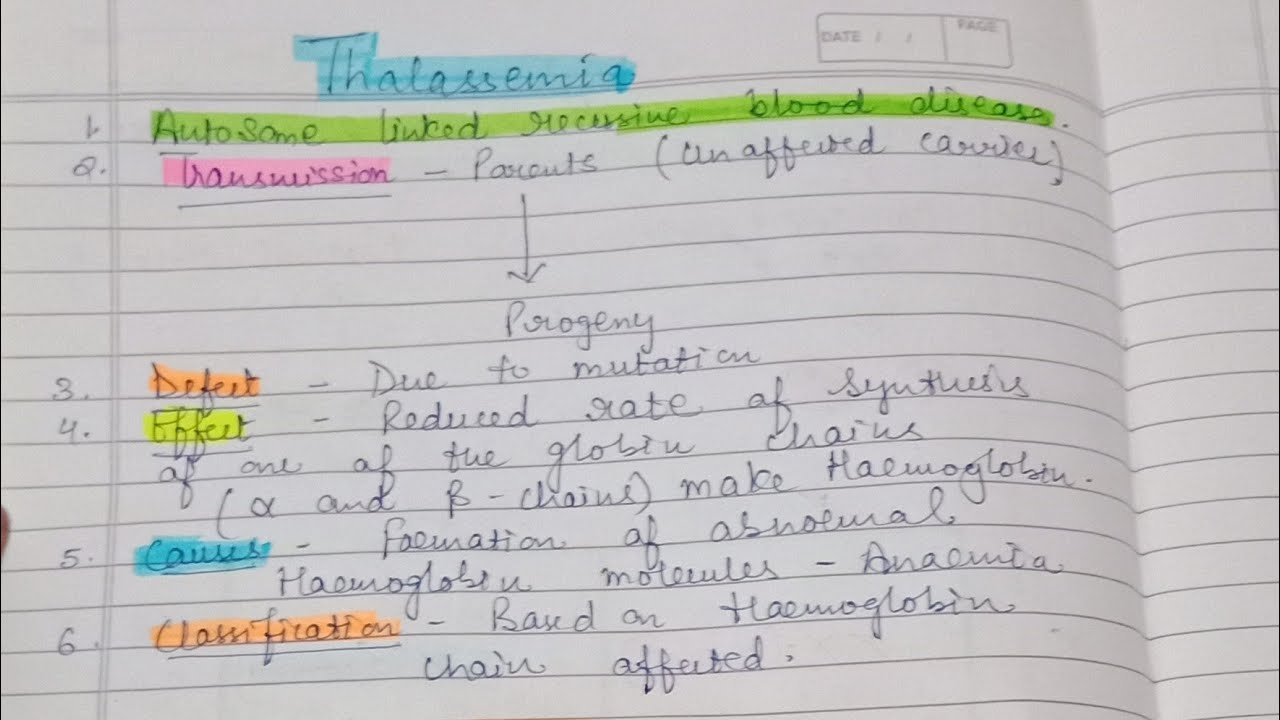 DATE / / PAGE
Thalassemia
1. Autosome linked recessive blood disease.
2. Transmission - Parents (unaffected carrier)
Progeny
3. Defect - Due to mutation
4. Effect - Reduced rate of synthesis
of one of the globin chains
(α and β - chains) make Haemoglobin.
5. Causes - Formation of abnormal
Haemoglobin molecules - Anaemia
6. Classification - Based on Haemoglobin
chain affected.